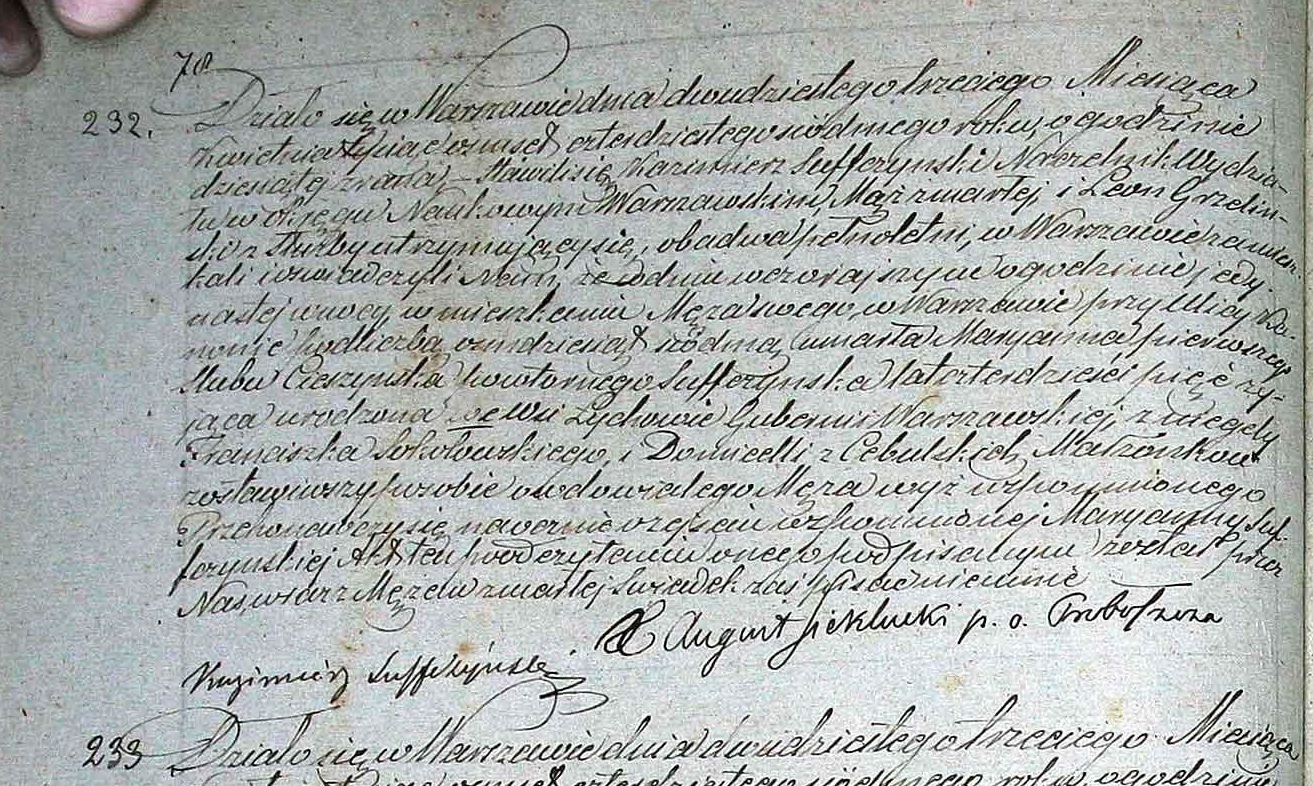 78
232. Działo się w Warszawie dnia dwudziestego trzeciego Miesiąca
Kwietnia tysiąc osmset czterdziestego siódmego roku, o godzinie
dziesiątej zrana, – Stawili się Kazimierz Suffczynski Naczelnik Wydzia-
łu w Okręgu Naukowym Warszawskim, Mąż zmarłej, i Leon Grzelin-
ski z Służby utrzymujący się, obadwa pełnoletni, w Warszawie zamiesz-
kali i oświadczyli Nam, że w dniu wczorajszym o godzinie jedy-
nastej w nocy, w mieszkaniu Męża swego, w Warszawie przy Ulicy Ka-
nonie pod liczbą osmdziesiąt siódmą, umarła Maryanna pierwszego
Ślubu Cieszyńska powtórnego Suffczyńska lat czterdzieści pięć ży-
jąca urodzona we Wsi Lychowie Gubernii Warszawskiej, z niegdy
Franciszka Sokołowskiego, i Domicelli z Cebulskich, Małżonków
zostawiwszy po sobie owdowiałego Męża wyż wspomnionego
Przekonawszy się naocznie o zejściu wspomnionej Maryanny Suf-
fczynskiej Akt ten po odczytaniu onego podpisanym został przez
Nas, wraz z Mężem zmarłej Świadek zaś pisać nieumie
X August Sieklucki p. o. Proboszcza
Kazimierz Suffczyński
233 Działo się w Warszawie dnia dwudziestego trzeciego Miesiąca
osmset czterdziestego siódmego roku, o godzinie